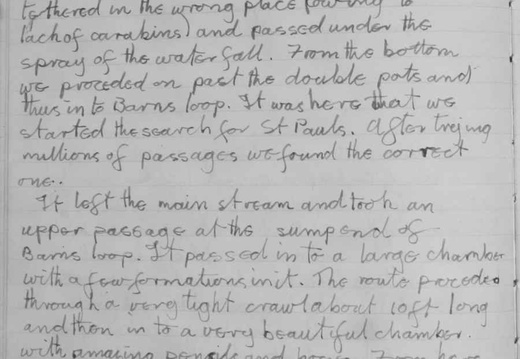 tethered in the wrong place (owing to
lack of carabins) and passed under the
spray of the waterfall. From the bottom
we proceded on past the double pots and
thus in to Barns loop. It was here that we
started the search for St Pauls. After trejing
millions of passages we found the correct
one..
It left the main stream and took an
upper passage at the sump end of
Barns loop. It passed in to a large chamber
with a few formations in it. The route proceded
through a very tight crawl about 10ft long
and then in to a very beautiful chamber.
with amazing and From here